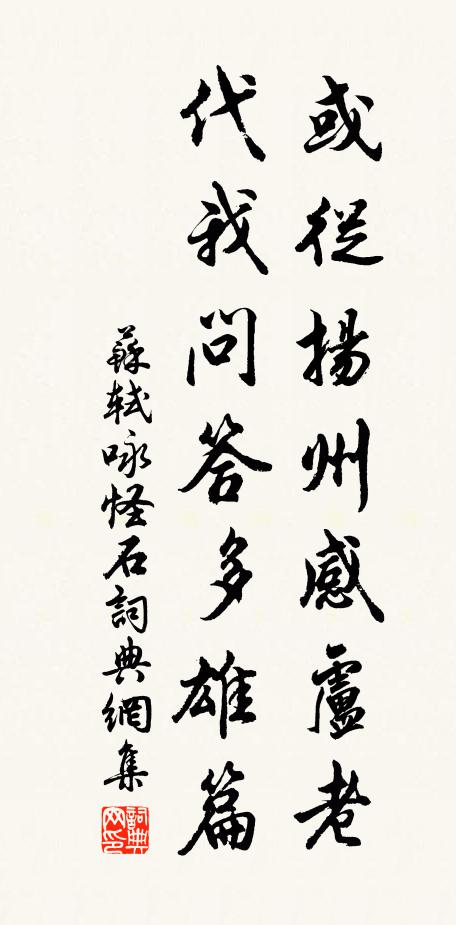 或從揚州感盧老
代我問答多雄篇
蘇軾咏怪石詞典網集
詞典網印